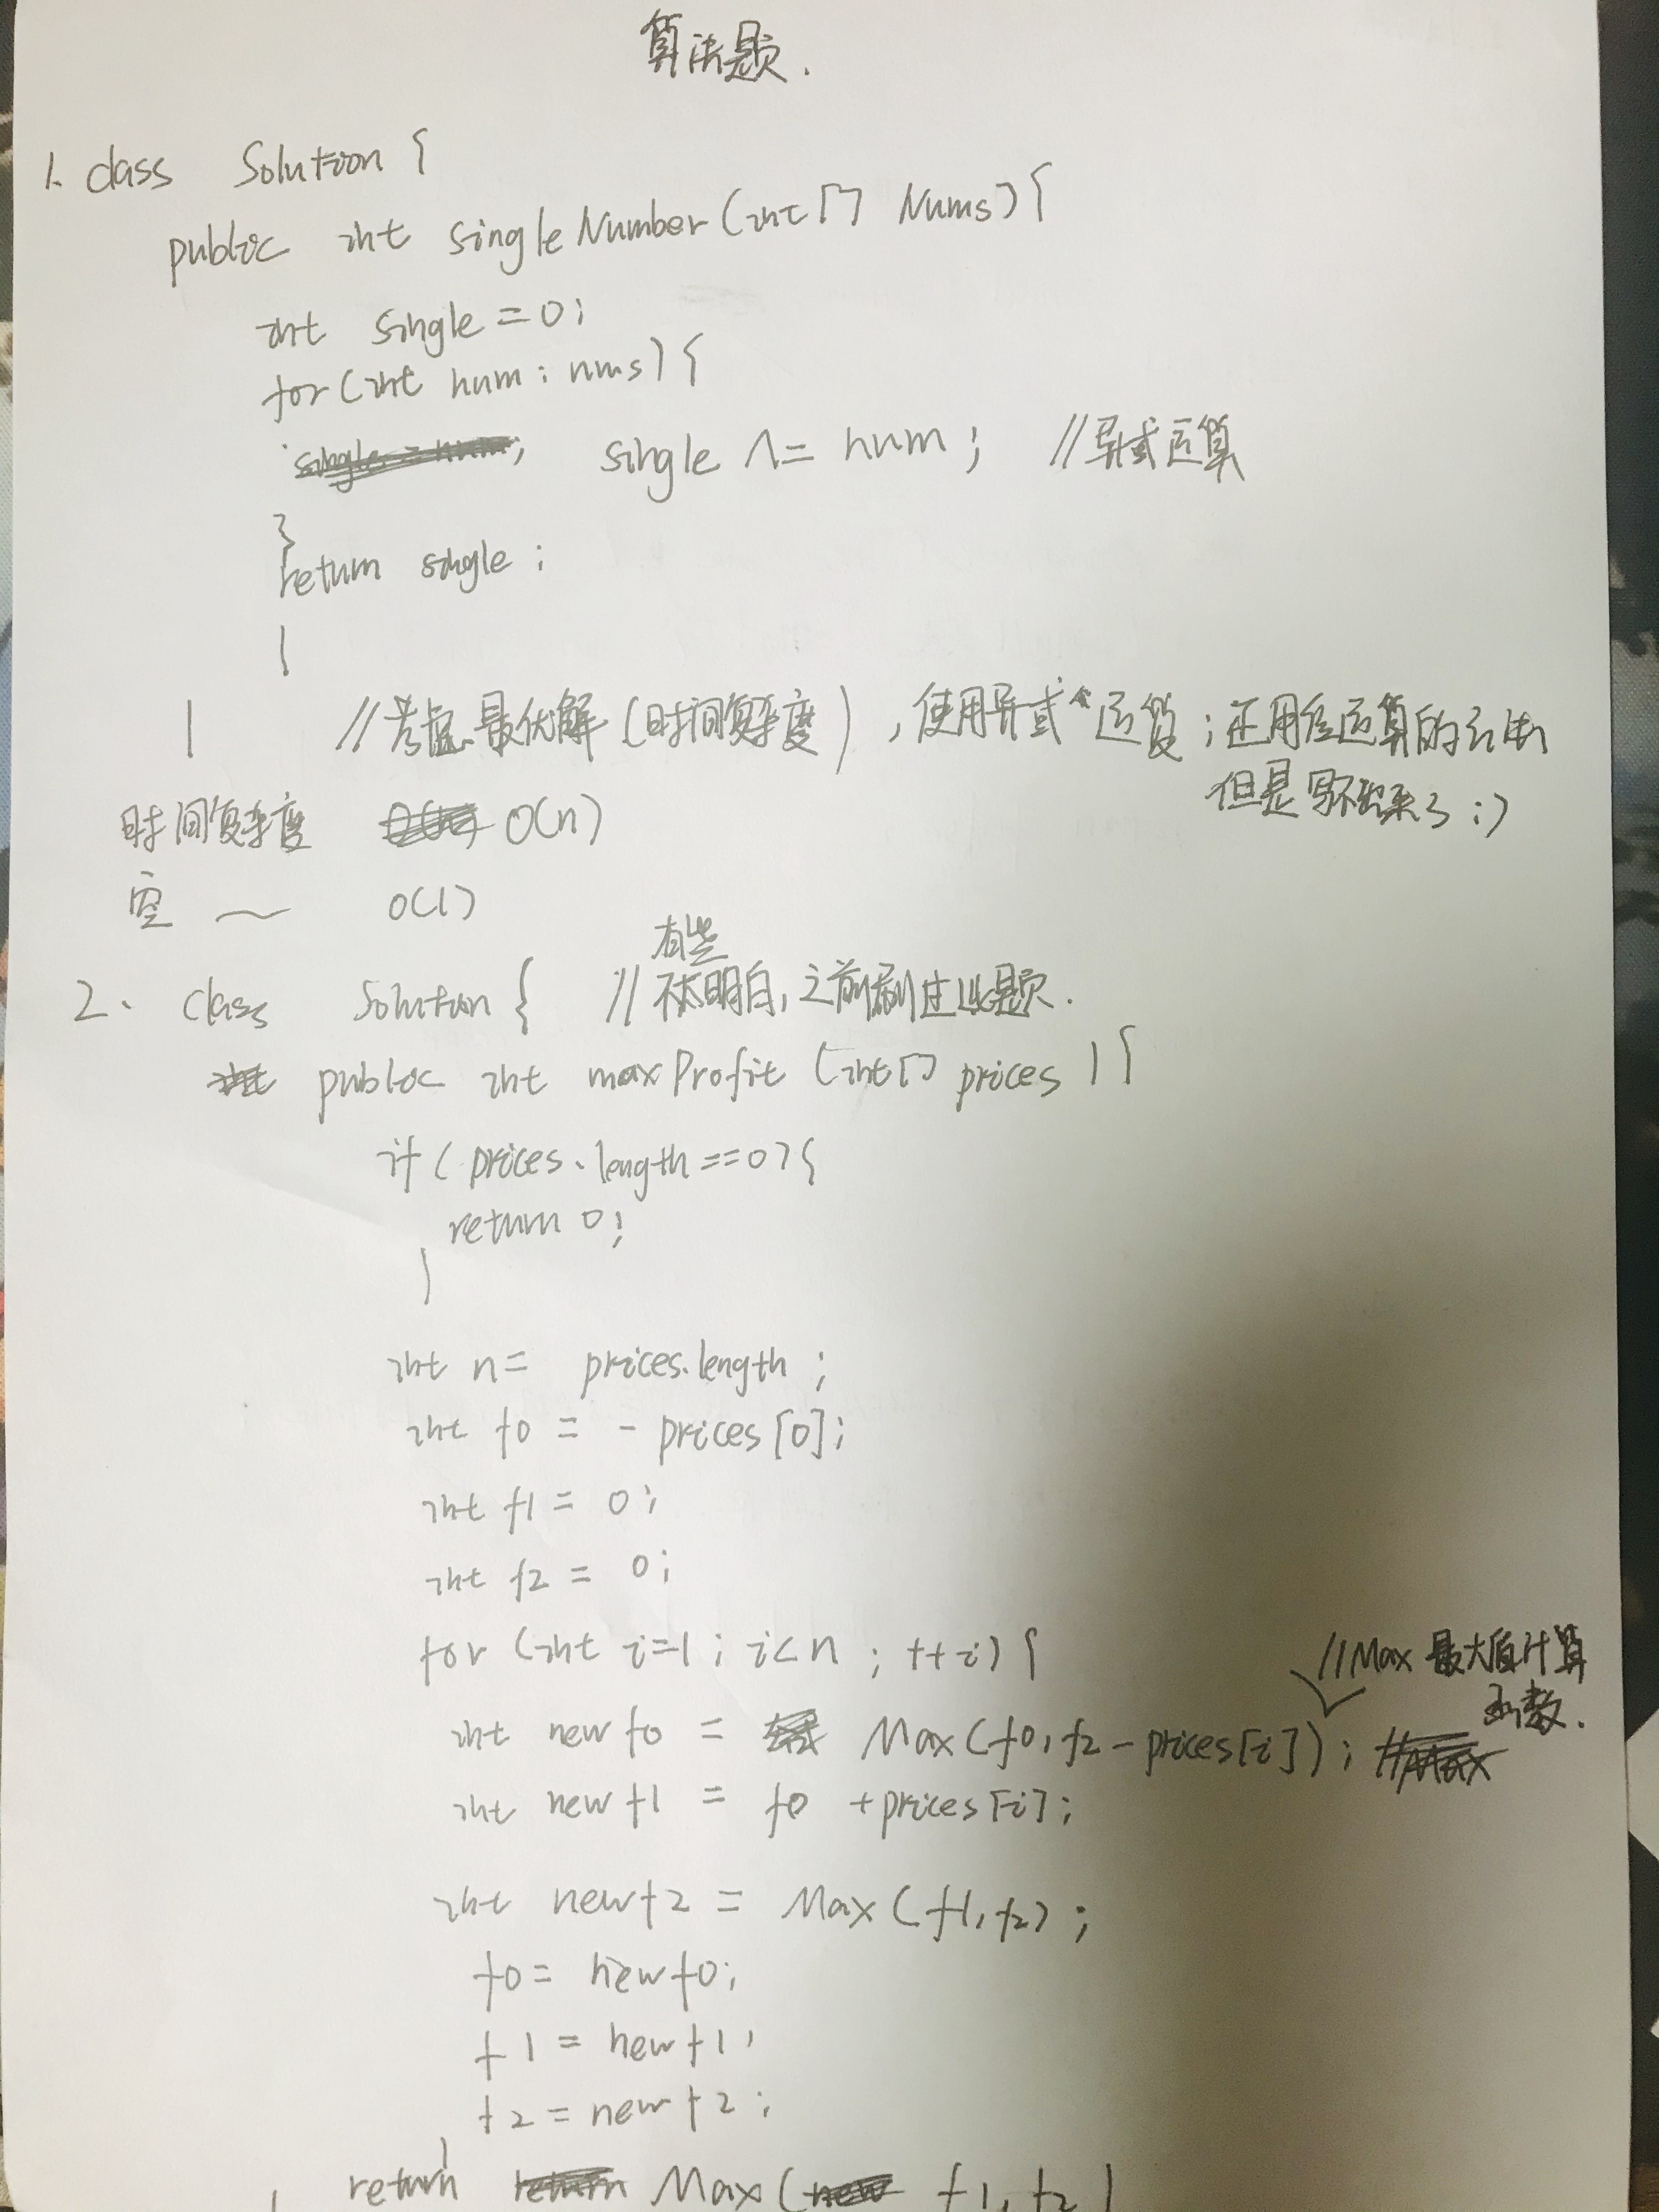 算法题.
1. class Solution {
public int singleNumber(int[] Nums){
int single = 0;
for(int num : nms){
single ^= num; //异或运算
}
return single;
}
} //考虑最优解(时间复杂度),使用异或^运算;还用位运算的方法
但是写不出来了:)
时间复杂度 O(n)
空 ~ O(1)
有些
2. class Solution { //不太明白,之前刷过此题.
public int maxProfit (int[] prices){
if(prices.length==0){
return 0;
}
int n = prices.length;
int f0 = - prices[0];
int f1 = 0;
int f2 = 0;
for (int i=1; i<n; ++i){
//Max 最大值计算
函数.
int newf0 = Max(f0, f2 - prices[i]);
int newf1 = f0 + prices[i];
int newf2 = Max(f1, f2);
f0 = newf0;
f1 = newf1;
f2 = newf2;
}
return Max( f1, f2)